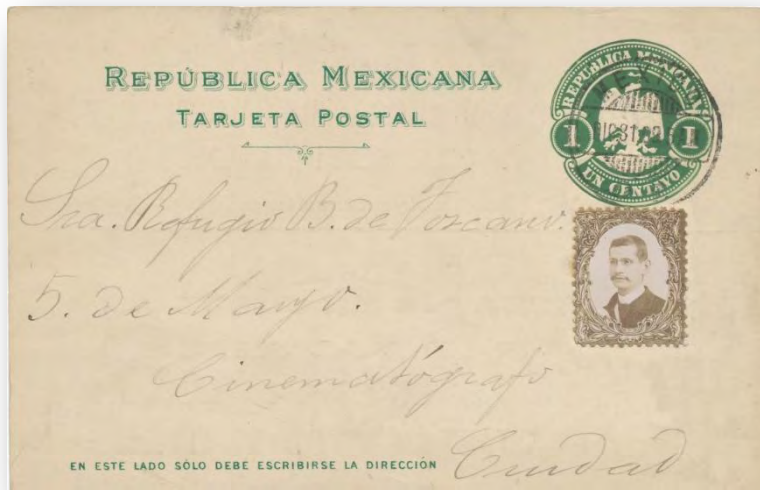 REPÚBLICA MEXICANA
TARJETA POSTAL
REPUBLICA MEXICANA
1 1
UN CENTAVO
Sra. Refugio B. de Toscano.
5. de Mayo.
Cinematógrafo
EN ESTE LADO SÓLO DEBE ESCRIBIRSE LA DIRECCIÓN
Ciudad